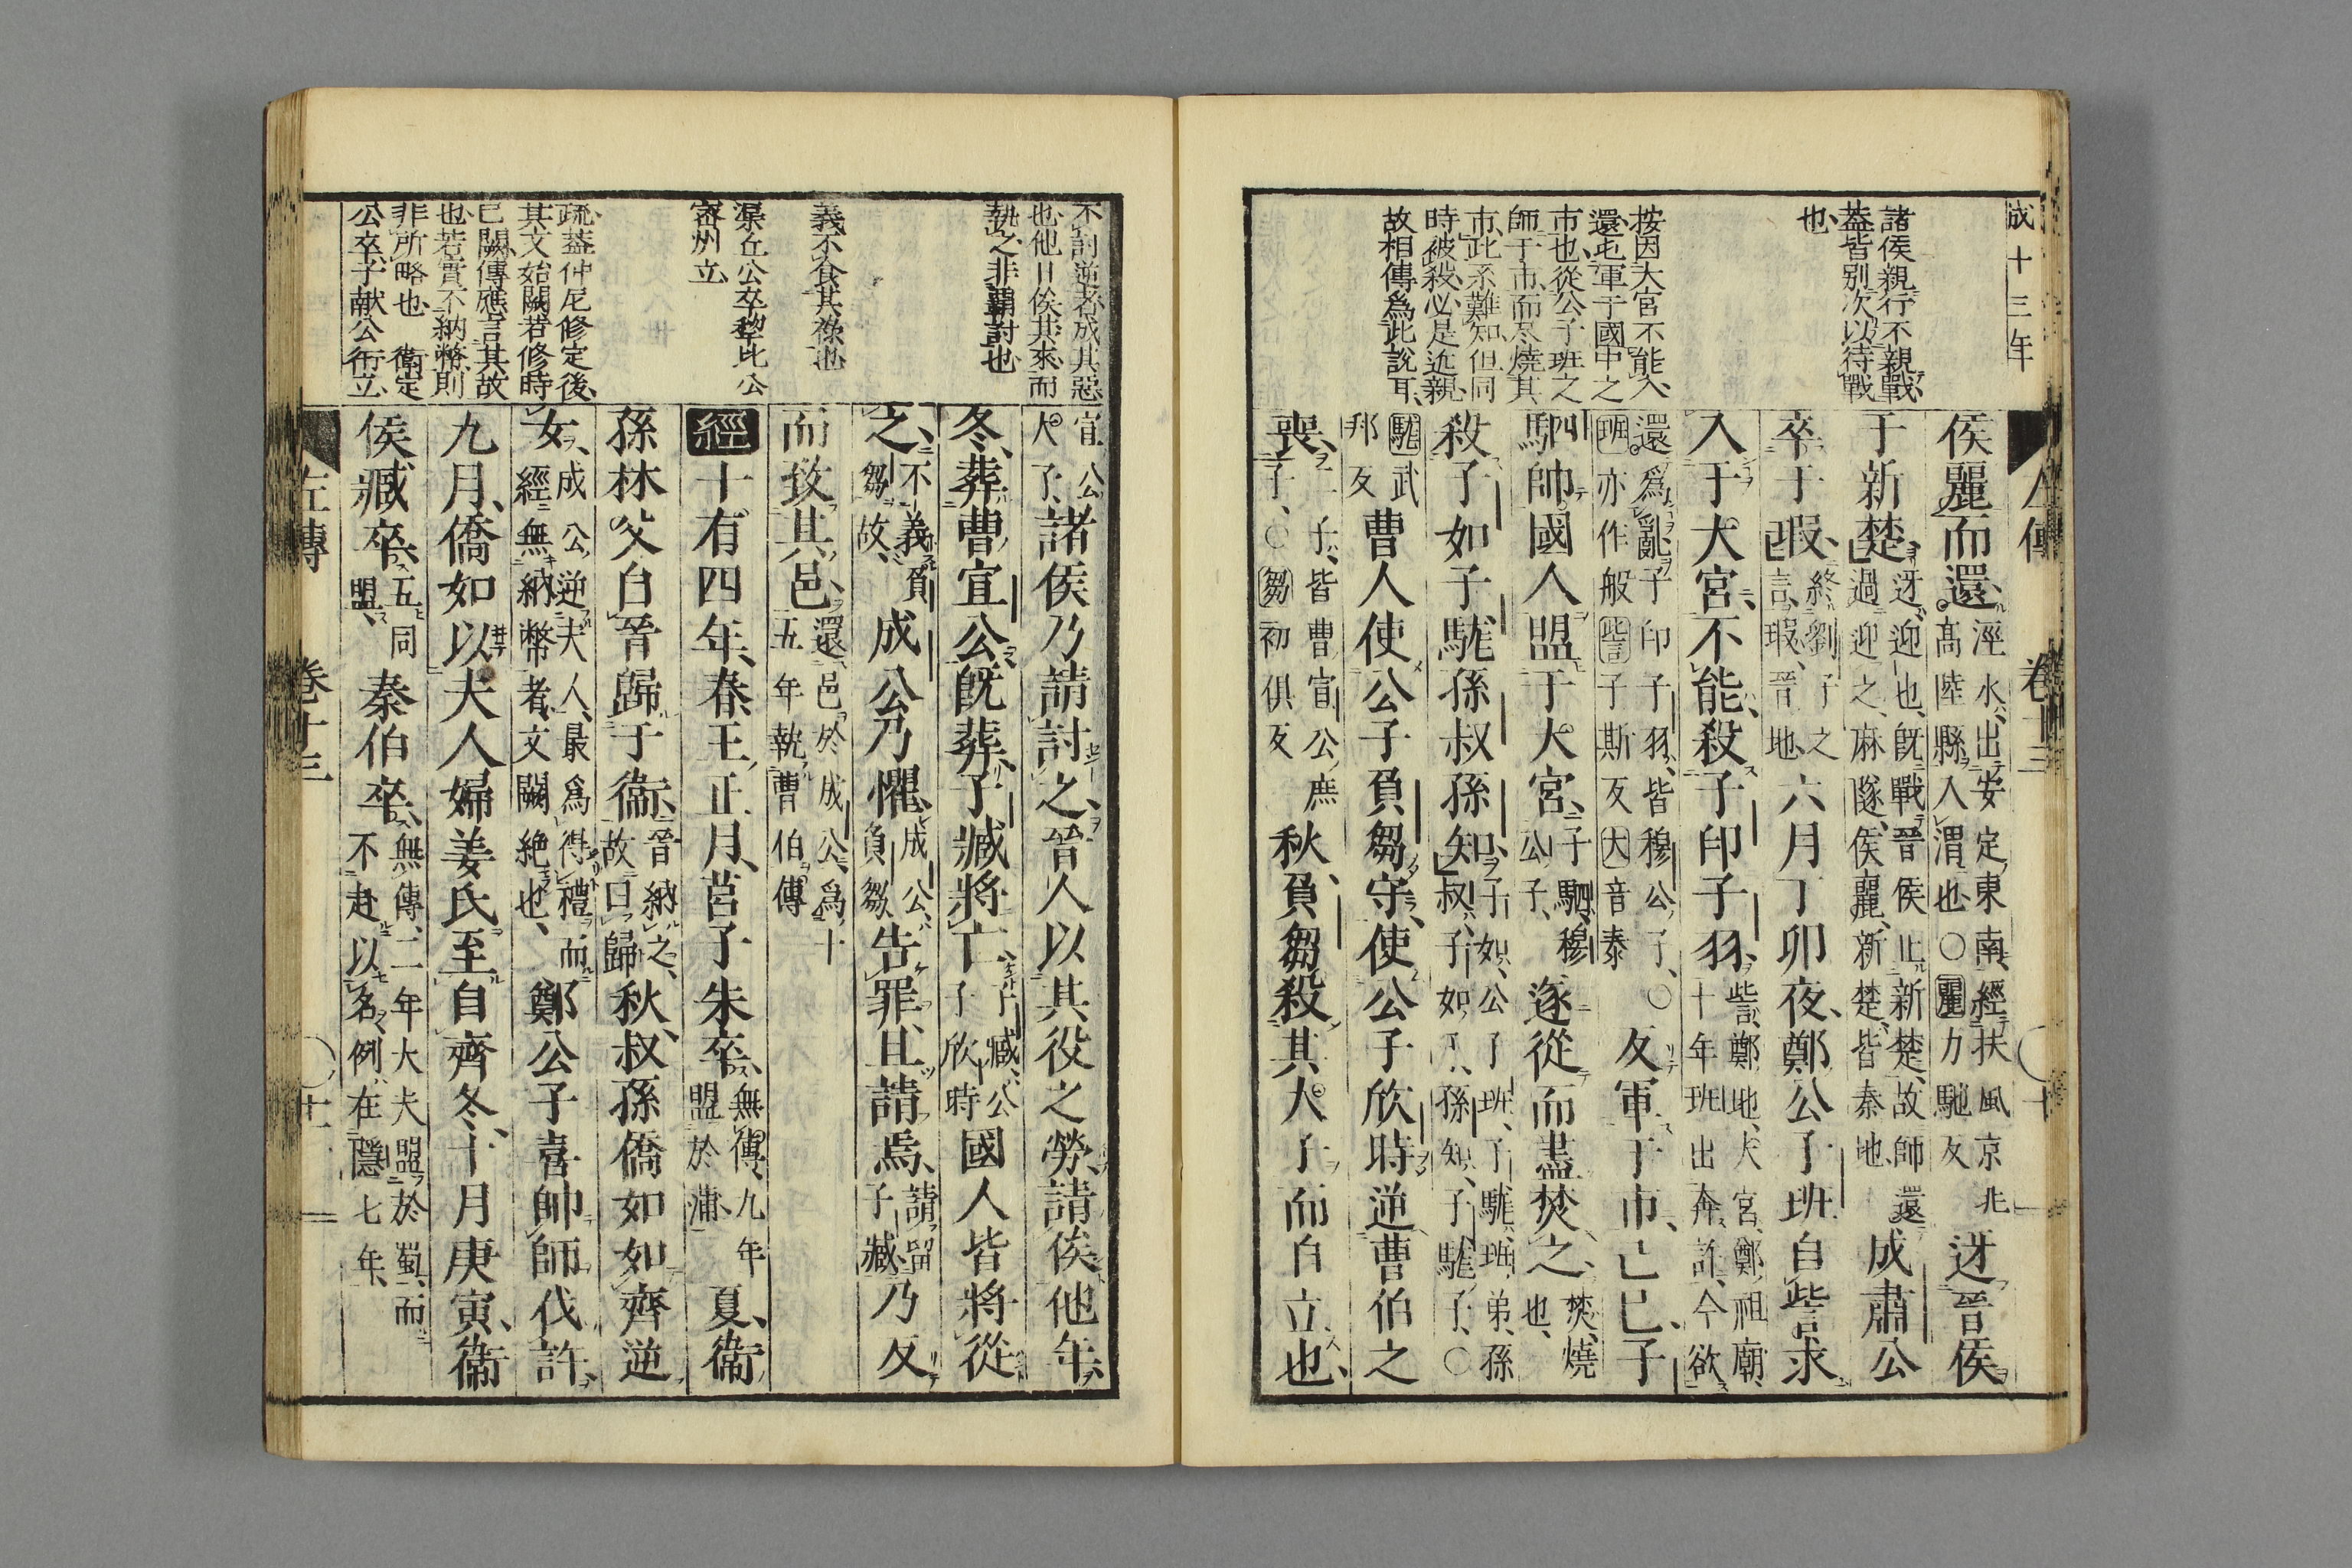 成十三年
諸侯親行不親戰
蓋皆別次以待戰
也
按因大宮不能入
還屯軍于國中之
市也從公子班之
師于市而尽燒其
市此系難知但同
時被殺必是近親
故相傳爲此說耳
侯麗而還涇水出安定東南經扶風京兆高陸縣入渭也〇麗力馳反迓晉侯
于新楚迓迎也既戰晉侯止新楚故師還過迎之麻隧侯麗新楚皆秦地成肅公
卒于瑕終劉子之言瑕晉地六月丁卯夜鄭公子班自訾求
入于大宮不能殺子印子羽訾鄭地大宮鄭祖廟十年班出奔許今欲
還爲亂子印子羽皆穆公子〇班亦作般訾子斯反大音泰反軍于市己巳子
駟帥國人盟于大宮子駟穆公子遂從而盡焚之焚燒也
殺子如子駹孫叔孫知子如公子班子駹班弟孫叔子如子孫知子駹子〇
駹武邦反曹人使公子負芻守使公子欣時逆曹伯之
喪二子皆曹宣公庶子〇芻初俱反秋負芻殺其大子而自立也
左傳 卷十三 十一
不討逆者成其惡
也他日俟其來而
執之非覇討也
義不食其祿也
渠丘公卒犂比公
密州立
疏蓋仲尼修定後
其文始闕若修時
已闕傳應言其故
也若實不納幣則
非所略也 衞定
公卒子献公衎立
宣公大子諸侯乃請討之晉人以其役之勞請俟他年
冬葬曹宣公既葬子臧將亡子臧公子欣時國人皆將從
之不義負芻故成公乃懼成公負芻告罪且請焉請留子臧乃反
而致其邑還邑於成公爲十五年執曹伯傳
經十有四年春王正月莒子朱卒無傳九年盟於蒲夏衞
孫林父自晉歸于衞晉納之故曰歸秋叔孫僑如如齊逆
女成公逆夫人最爲得禮而經無納幣者文闕絶也鄭公子喜帥師伐許
九月僑如以夫人婦姜氏至自齊冬十月庚寅衞
侯臧卒五同盟秦伯卒無傳二年大夫盟於蜀而不赴以名例在隱七年